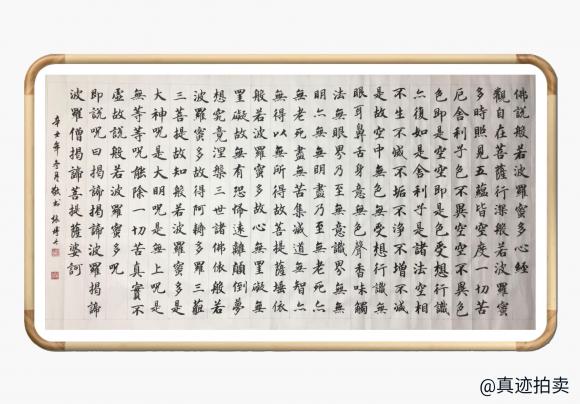 佛說般若波羅蜜多心經
觀自在菩薩行深般若波羅蜜
多時照見五蘊皆空度一切苦
厄舍利子色不異空空不異色
色即是空空即是色受想行識
亦復如是舍利子是諸法空相
不生不滅不垢不淨不增不減
是故空中無色無受想行識無
眼耳鼻舌身意無色聲香味觸
法無眼界乃至無意識界無無
明亦無無明盡乃至無老死亦
無老死盡無苦集滅道無智亦
無得以無所得故菩提薩埵依
般若波羅蜜多故心無罣礙無
罣礙故無有恐怖遠離顛倒夢
想究竟涅槃三世諸佛依般若
波羅蜜多故得阿耨多羅三藐
三菩提故知般若波羅蜜多是
大神呪是大明呪是無上呪是
無等等呪能除一切苦真實不
虛故說般若波羅蜜多呪
即說呪曰揭諦揭諦波羅揭諦
波羅僧揭諦菩提薩婆訶
辛丑年冬月敬书 張
@真迹拍卖